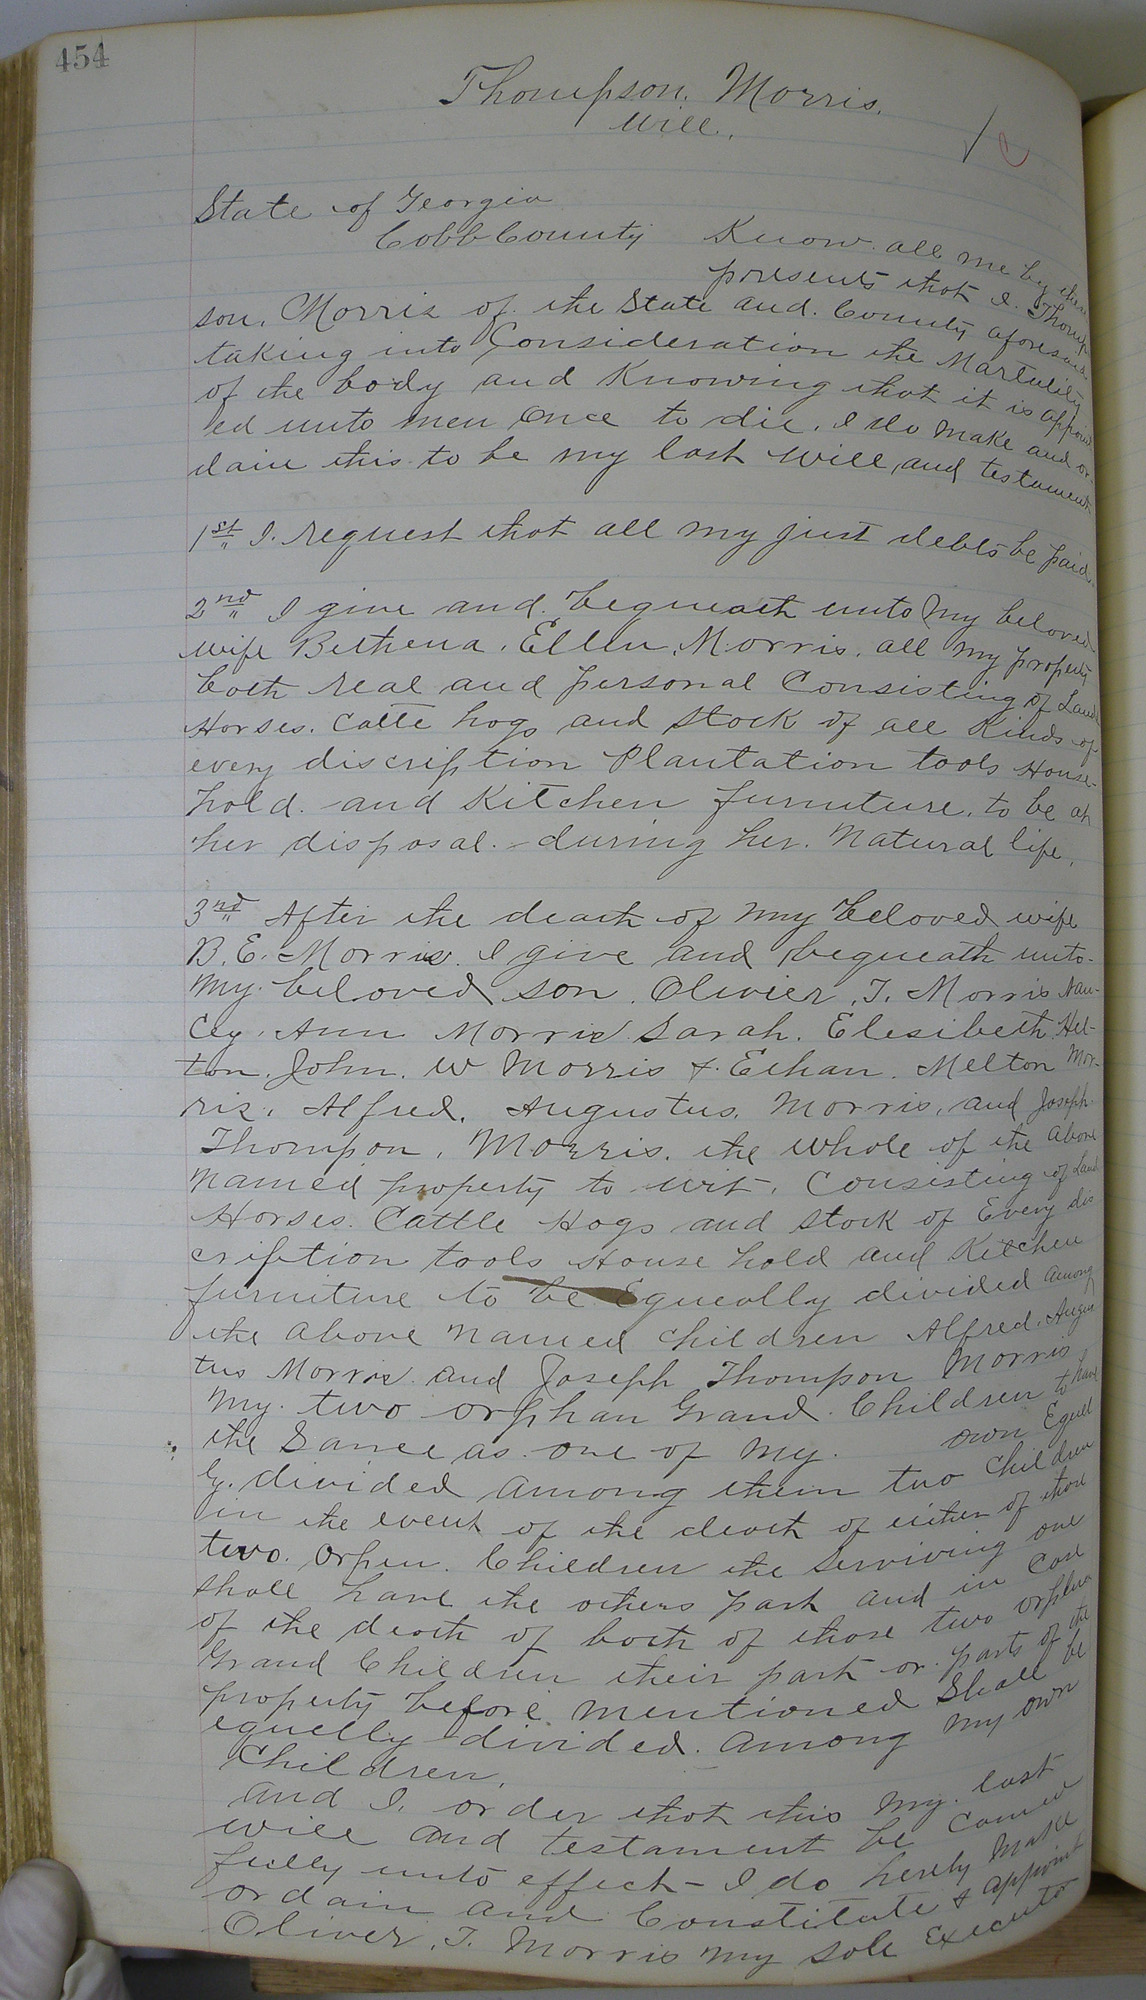 454
Thompson. Morris.
Will.
State of Georgia
Cobb County Know all me by these
presents that I. Thomp
son. Morris of the State and. County aforesaid
taking into Consideration the Martulity
of the body and Knowing that it is appoint
ed unto men Once to die. I do make and or-
dain this to be my last will and testament
1st I. request that all my just debts be paid
2nd I give and bequeath unto my beloved
wife Bethena. Ellen. Morris. all my property
both real and personal Consisting of Land
Horses. Catte hogs and stock of all Kinds of
every discription Plantation tools House-
hold. and Kitchen furniture. to be at
her disposal. during her. Natural life.
3rd After the death of my beloved wife
B. E. Morris. I give and bequeath unto-
my. beloved son. Olivier. T. Morris Nan-
cy. Ann Morris Sarah. Elesibeth Hel-
ton. John. W Morris & Ethan. Melton Mor-
ris. Alfred. Augustus. Morris. and Joseph
Thompon. Morris. the whole of the above
named property to wit. Consisting of Land
Horses. Cattle Hogs and stock of Every dis
cription tools House hold and Kitchen
furniture to be Equeally divided among
the above named children Alfred. Augus
tus Morris and Joseph Thompson Morris
my. two orphan Grand. Children to have
the Same as one of my. own Equel
ly. divided among them two children
in the event of the death of either of those
two. Orpen. Children the Serviving one
shall have the others part and in case
of the death of both of those two orphan
Grand Children their part or parts of the
property before mentioned Shall be
equelly divided. among my own
Children.
and I. order that this my. last
will and testament be Carried
fully unto effect - I do hereby make
ordain and Constitute & appoint
Oliver. T. Morris my sole Executor